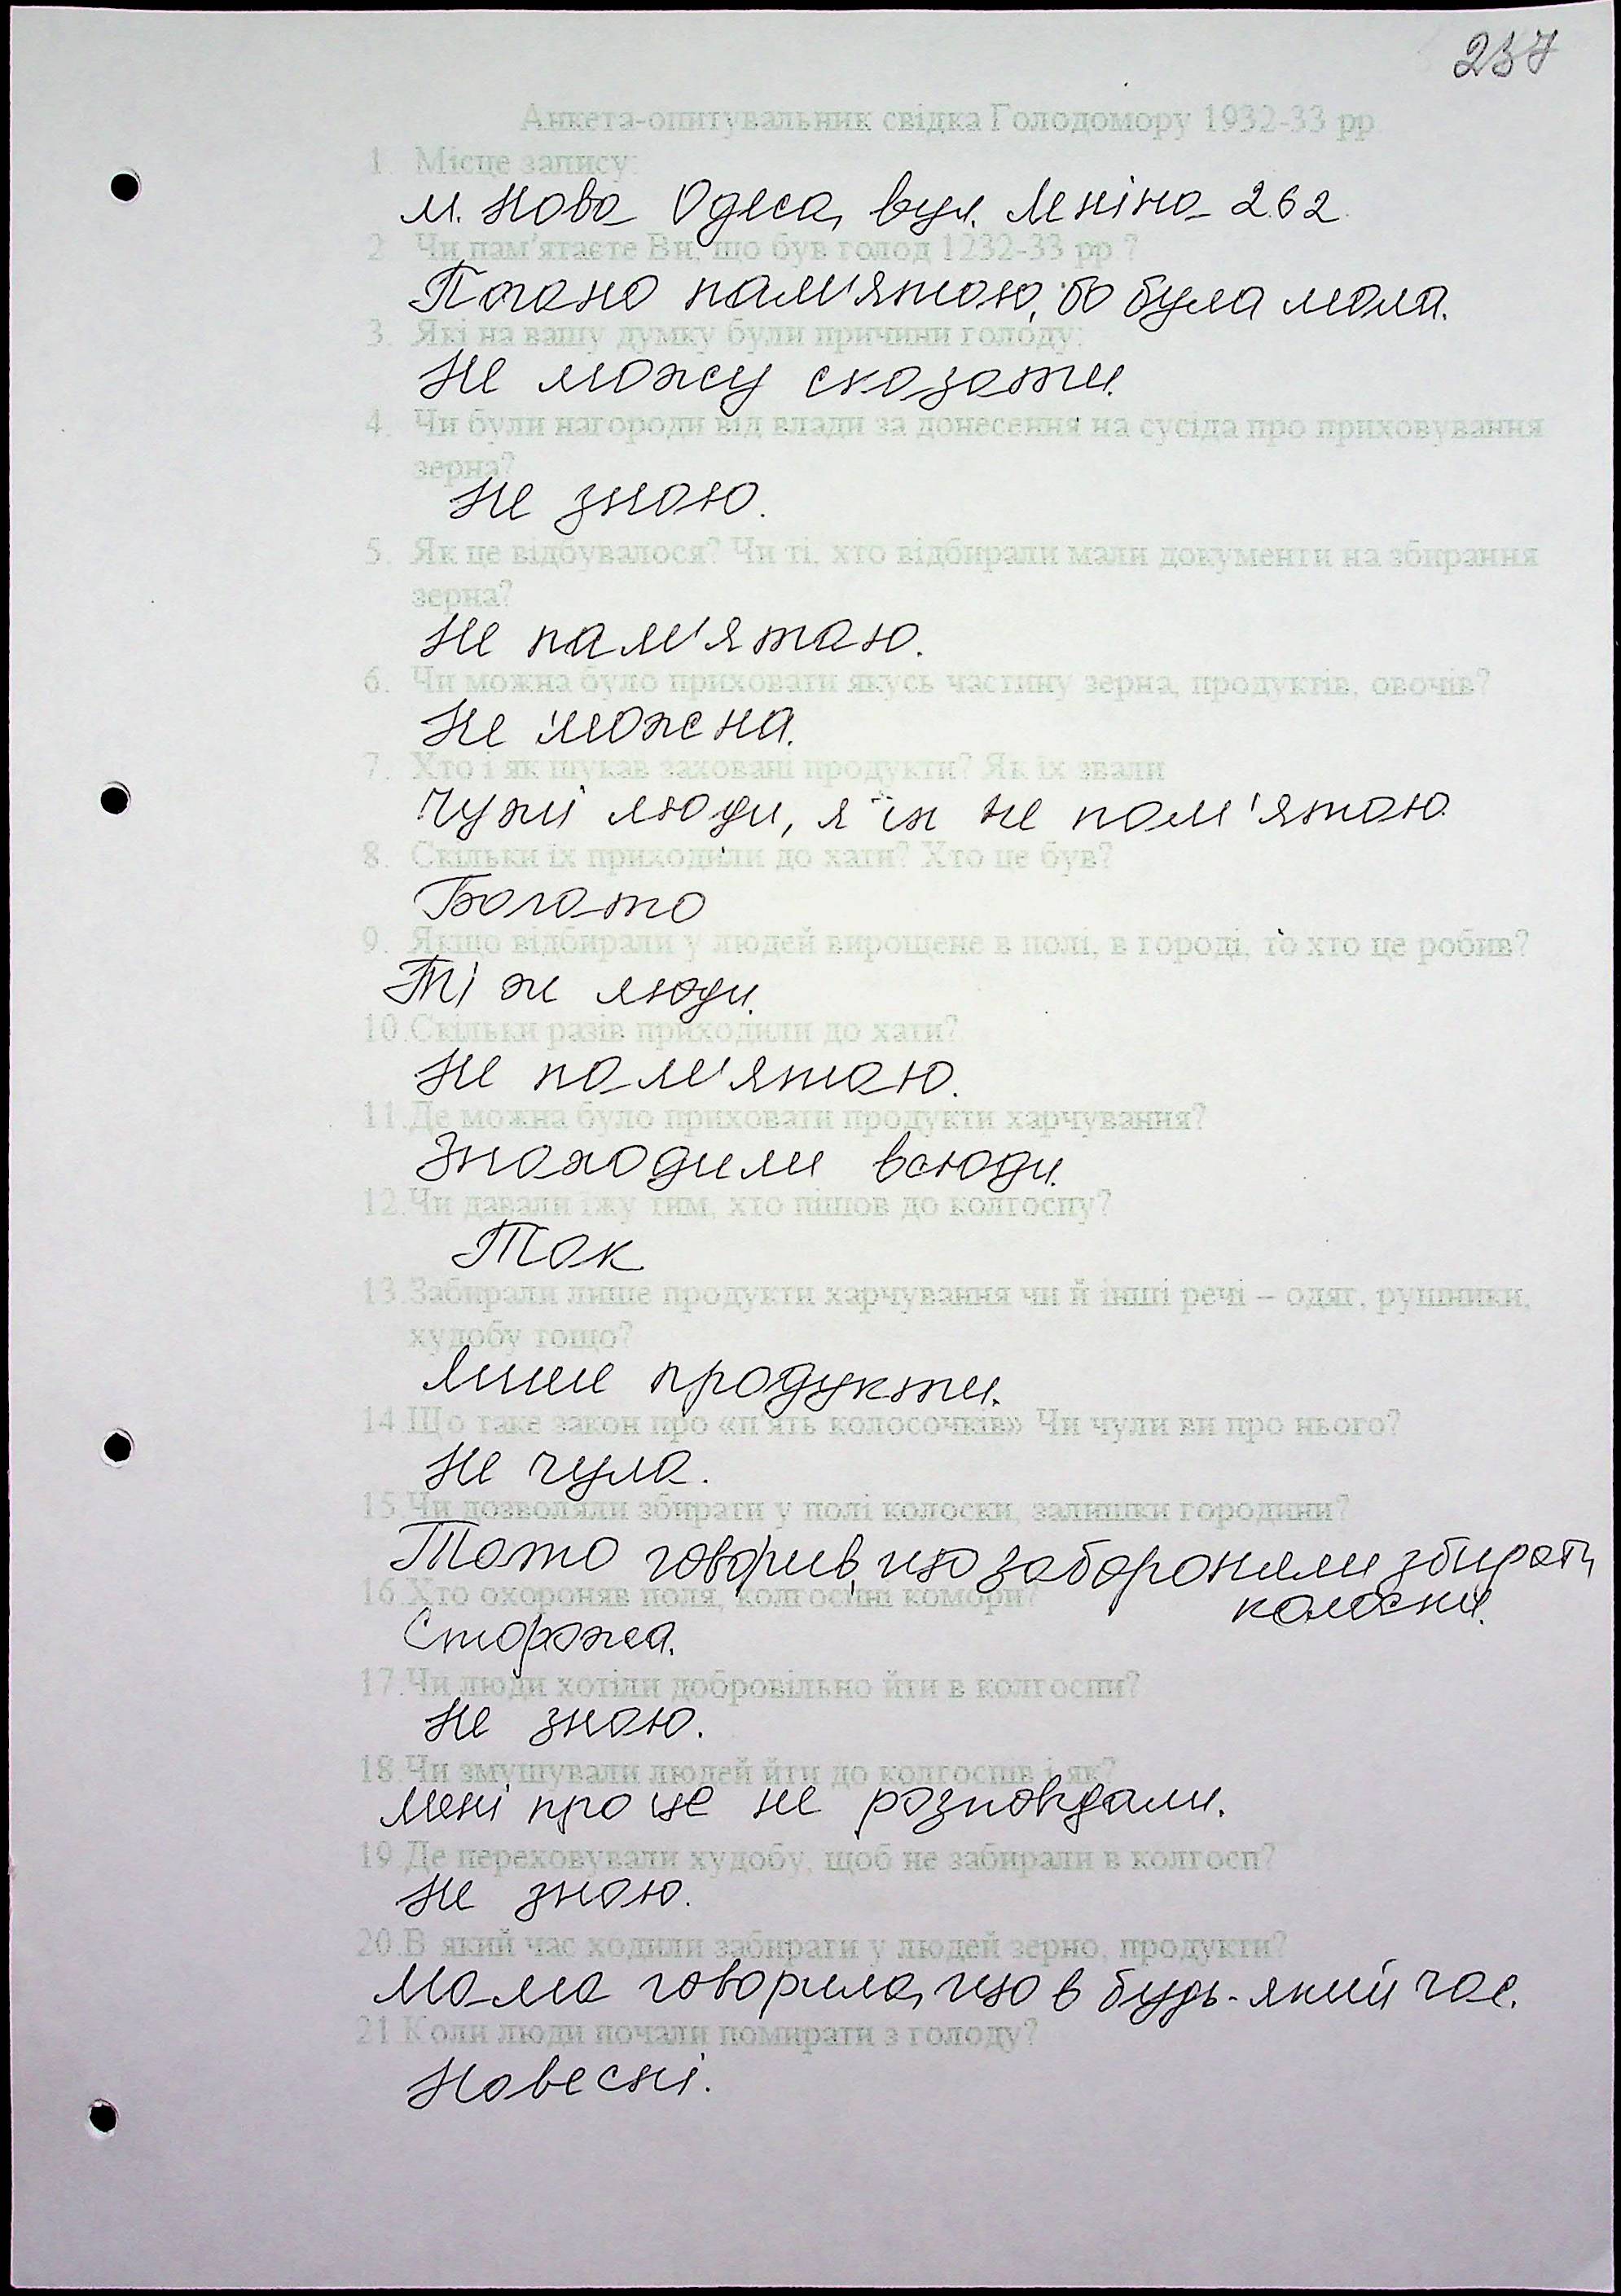 237
Анкета-опитувальник свідка Голодомору 1932-33 рр
1. Місце запису:
м. Нова Одеса, вул. Леніна 262.
2. Чи пам'ятаєте Ви, що був голод 1232-33 рр ?
Погано пам'ятаю, бо була мала.
3. Які на вашу думку були причини голоду:
Не можу сказати.
4. Чи були нагороди від влади за донесення на сусіда про приховування
зерна?
Не знаю.
5. Як це відбувалося? Чи ті, хто відбирали мали документи на збирання
зерна?
Не пам'ятаю.
6. Чи можна було приховати якусь частину зерна, продуктів, овочів?
Не можна.
7. Хто і як шукав заховані продукти? Як їх звали
Чужі люди, я їх не пам'ятаю.
8. Скільки їх приходили до хати? Хто це був?
Богато
9. Якщо відбирали у людей вирощене в полі, в городі, то хто це робив?
Ті ж люди.
10. Скільки разів приходили до хати?
Не пам'ятаю.
11. Де можна було приховати продукти харчування?
Знаходили всюди.
12. Чи давали їжу тим, хто пішов до колгоспу?
Так
13. Забирали лише продукти харчування чи й інші речі – одяг, рушники,
худобу тощо?
Лише продукти.
14. Що таке закон про «п'ять колосочків» Чи чули ви про нього?
Не чула.
15. Чи дозволяли збирати у полі колоски, залишки городини?
Тато говорив, що забороняли збирати
колоски.
16. Хто охороняв поля, колгоспні комори?
Сторожа.
17. Чи люди хотіли добровільно йти в колгоспи?
Не знаю.
18. Чи змушували людей йти до колгоспів і як?
Мені про це не розповідали.
19. Де переховували худобу, щоб не забирали в колгосп?
Не знаю.
20. В який час ходили забирати у людей зерно, продукти?
Мама говорила, що в будь-який час.
21. Коли люди почали помирати з голоду?
Навесні.